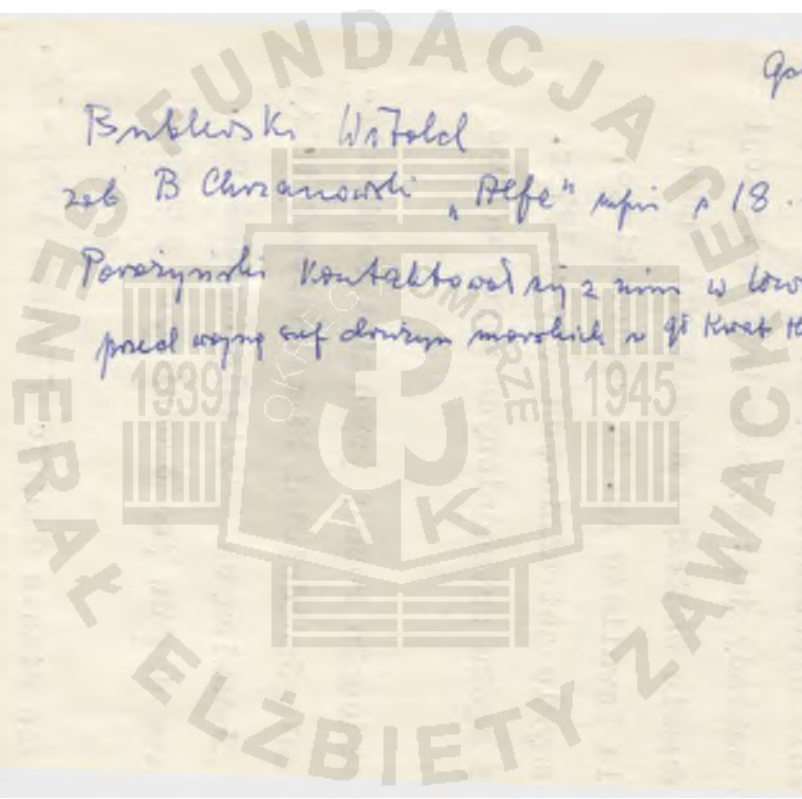 Bublewski Witold
zob B Chrzanowski „Alfa" mps s 18.
Porożyński Kontaktował się z nim w
przed wojną szef drużyn morskich w gł Kwat
FUNDACJA
GENERAŁ ELŻBIETY ZAWACKIEJ
OKRĘG POMORZE
1939 1945
AK